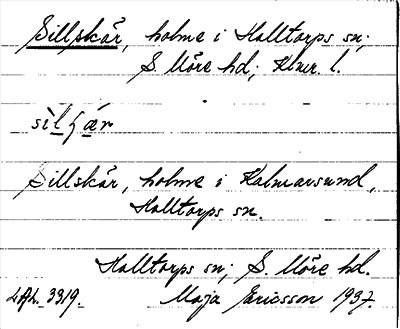 Sillskär, holme i Halltorps sn;
S. Möre hd; Klmr. l.
sìlʃær
Sillskär, holme i Kalmarsund,
Halltorps sn.
Halltorps sn; S. Möre hd.
LAL. 3319. Maja Ericsson 1937.